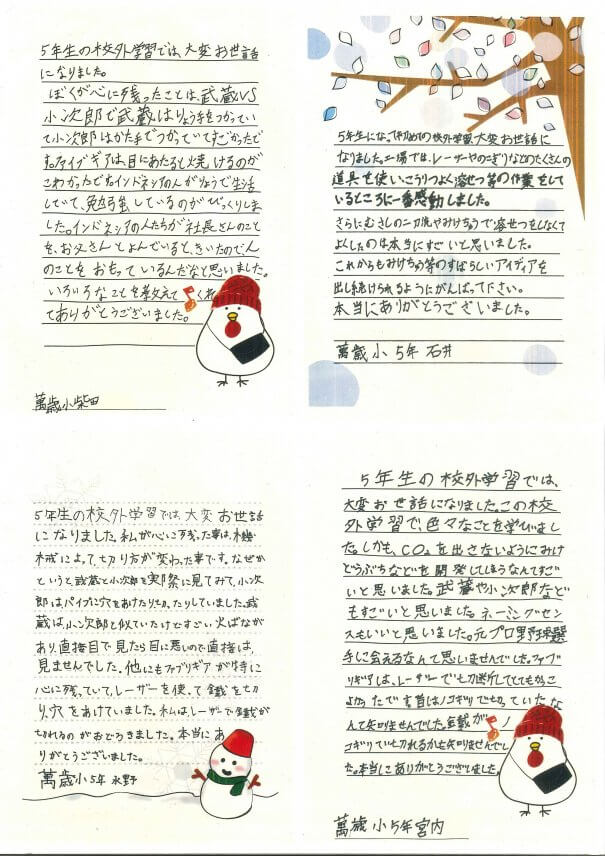 5年生の校外学習では、大変お世話
になりました。
ぼくが心に残ったことは、武蔵VS
小次郎で武蔵はりょう手をつかってい
て小次郎はかた手でつかっていてすごかったで
す。ファイブギアは、目にあたると焼けるのが
こわかったですインドネシアの人がりょうで生活
していて、勉強しているのがびっくりしま
した。インドネシアの人たちが社長さんのこと
を、お父さんとよんでいると、きいたので人
のことをおもっているんだなと思いました。
いろいろなことを教えてくれ
てありがとうございました。
萬歳小柴田
5年生になって初めての校外学習大変お世話に
なりました。工場では、レーザーやのこぎりなどのたくさんの
道具を使い、こうりつよく溶せつ等の作業をして
いるところに一番感動しました。
さらにむさしの二刀流やみけちゅうで溶せつをしなくて
よくしたのは本当にすごいと思いました。
これからもみけちゅう等のすばらしいアイディアを
出し続けられるようにがんばって下さい。
本当にありがとうございました。
萬歳小5年 石井
5年生の校外学習では、大変お世話
になりました。私が心に残った事は、機
械によって、切り方が変わった事です。なぜか
というと武蔵と小次郎を実際に見てみて、小次
郎はパイプに穴をあけたり切ったりしていました。武
蔵は、小次郎と似ていたけどすごい火ばなが
あり、直接目で見たら目に悪いので直接は、
見ませんでした。他にもファブリギアが特に
心に残っていて、レーザーを使って鉄を切
り、穴をあけていました。私はレーザーで鉄が
切れるのがおどろきました。本当にあ
りがとうございました。
萬歳小5年 永野
5年生の校外学習では、
大変お世話になりました。この校
外学習で、色々なことを学びまし
た。しかも、CO2を出さないようにみけ
どうぶちなどを開発してしまうなんてすご
いと思いました。武蔵や小次郎なども
もすごいと思いました。ネーミングセン
スもいいと思いました。元プロ野球選
手に会えるなんて思いませんでした。ファブ
リギアは、レーザーで切断しててとてもかっこ
よかったです昔はノコギリで切っていたな
んて知りませんでした。鉄が
ノコギリで切れるかも知りませんでし
た。本当にありがとうございました。
萬歳小5年宮内